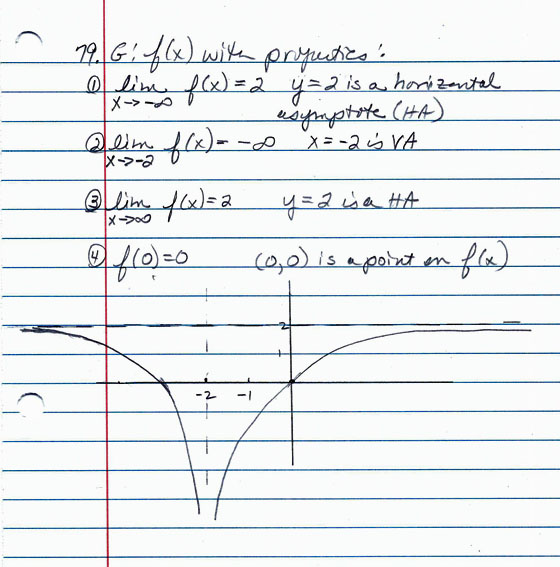 79. G: f(x) with properties:
① lim x→-∞ f(x) = 2 y = 2 is a horizontal
asymptote (HA)
② lim x→-2 f(x) = -∞ x = -2 is VA
③ lim x→∞ f(x) = 2 y = 2 is a HA
④ f(0) = 0 (0,0) is a point on f(x)
2
1
-2 -1